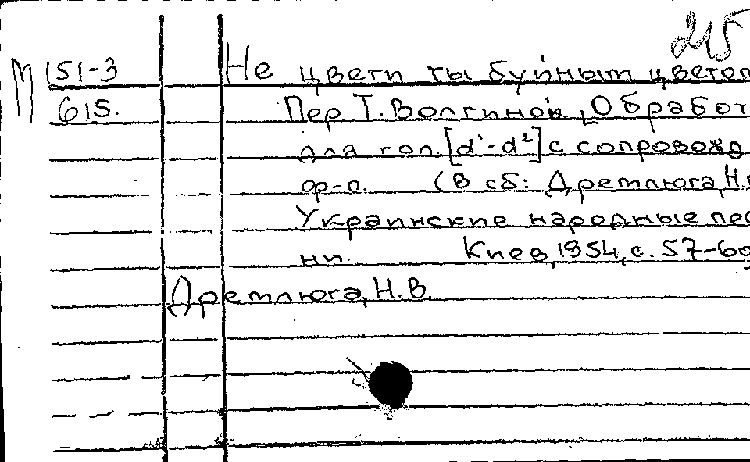 215
М 151-3 Не цвети ты буйным цветом
615. Пер Т. Волгиной, Обработ
для гол. [d'-d²] с сопровожд
ф-п. (В сб: Дремлюга, Н.
Украинские народные пес
ни. Киев, 1954, с. 57-60
Дремлюга, Н.В.